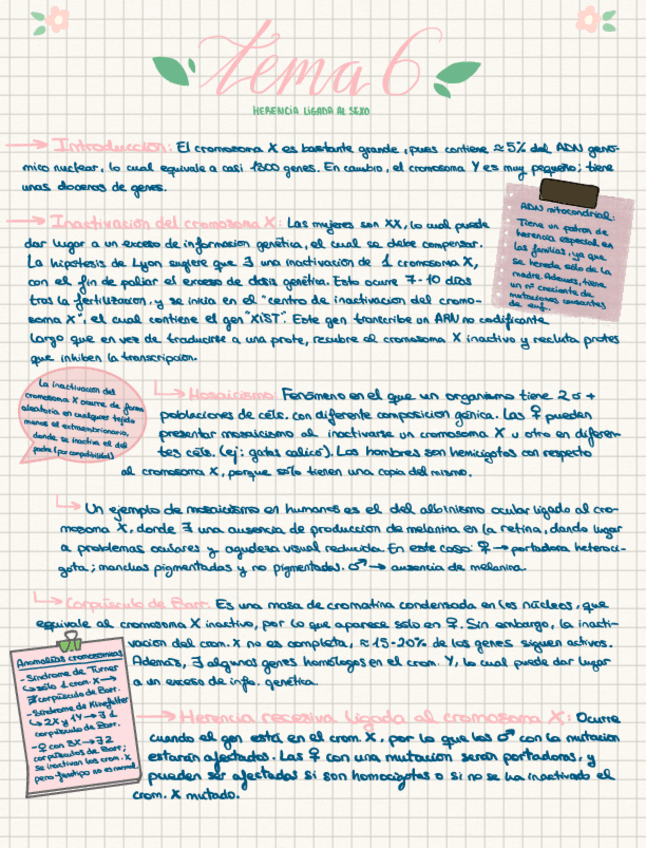 Tema 6
HERENCIA LIGADA AL SEXO
→ Introducción: El cromosoma X es bastante grande, pues contiene ≈ 5% del ADN genó-
mico nuclear, lo cual equivale a casi 1300 genes. En cambio, el cromosoma Y es muy pequeño; tiene
unas docenas de genes.
ADN mitocondrial:
Tiene un patrón de
herencia especial en
las familias, ya que
se hereda sólo de la
madre. Además, tiene
un nº creciente de
mutaciones causantes
de enf.
→ Inactivación del cromosoma X: Las mujeres son XX, lo cual puede
dar lugar a un exceso de información genética, el cual se debe compensar.
La hipótesis de Lyon sugiere que ∃ una inactivación de 1 cromosoma X,
con el fin de paliar el exceso de dosis genética. Esto ocurre 7-10 días
tras la fertilización, y se inicia en el "centro de inactivación del cromo-
soma X", el cual contiene el gen "XIST". Este gen transcribe un ARN no codificante
largo que en vez de traducirse a una prote, recubre al cromosoma X inactivo y recluta protes
que inhiben la transcripción.
La inactivación del
cromosoma X ocurre de forma
aleatoria en cualquier tejido
menos el extraembrionario,
donde se inactiva el del
padre (por compatibilidad)
↳ Mosaicismo: Fenómeno en el que un organismo tiene 2 o +
poblaciones de céls. con diferente composición génica. Las ♀ pueden
presentar mosaicismo al inactivarse un cromosoma X u otro en diferen-
tes céls. (ej: gatos calico). Los hombres son hemicigotos con respecto
al cromosoma X, porque sólo tienen una copia del mismo.
↳ Un ejemplo de mosaicismo en humanos es el del albinismo ocular ligado al cro-
mosoma X, donde ∃ una ausencia de producción de melanina en la retina, dando lugar
a problemas oculares y agudeza visual reducida. En este caso: ♀ → portadora heteroci-
gota; manchas pigmentadas y no pigmentadas. ♂ → ausencia de melanina.
↳ Corpúsculo de Barr: Es una masa de cromatina condensada en los núcleos, que
equivale al cromosoma X inactivo, por lo que aparece sólo en ♀. Sin embargo, la inacti-
vación del crom. X no es completa, ≈ 15-20% de los genes siguen activos.
Además, ∃ algunos genes homólogos en el crom. Y, lo cual puede dar lugar
a un exceso de info. genética.
Anomalías cromosómicas
- Síndrome de Turner
↳ sólo 1 crom. X →
∄ corpúsculo de Barr.
- Síndrome de Klinefelter
↳ 2X y 1Y → ∃ 1
corpúsculo de Barr.
- ♀ con 3X → ∃ 2
corpúsculos de Barr;
se inactivan los crom. X
pero fenotipo no es normal.
→ Herencia recesiva ligada al cromosoma X: Ocurre
cuando el gen está en el crom. X, por lo que los ♂ con la mutación
estarán afectados. Las ♀ con una mutación serán portadoras, y
pueden ser afectadas si son homocigotas o si no se ha inactivado el
crom. X mutado.